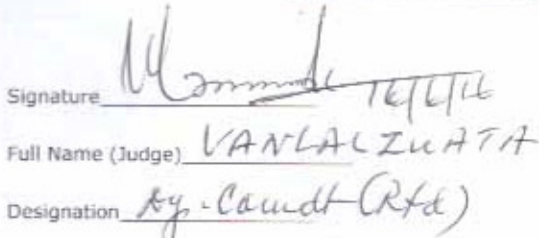 Signature 16/6/16
Full Name (Judge) VANLALZUATA
Designation Dy. Comdt (Rtd)